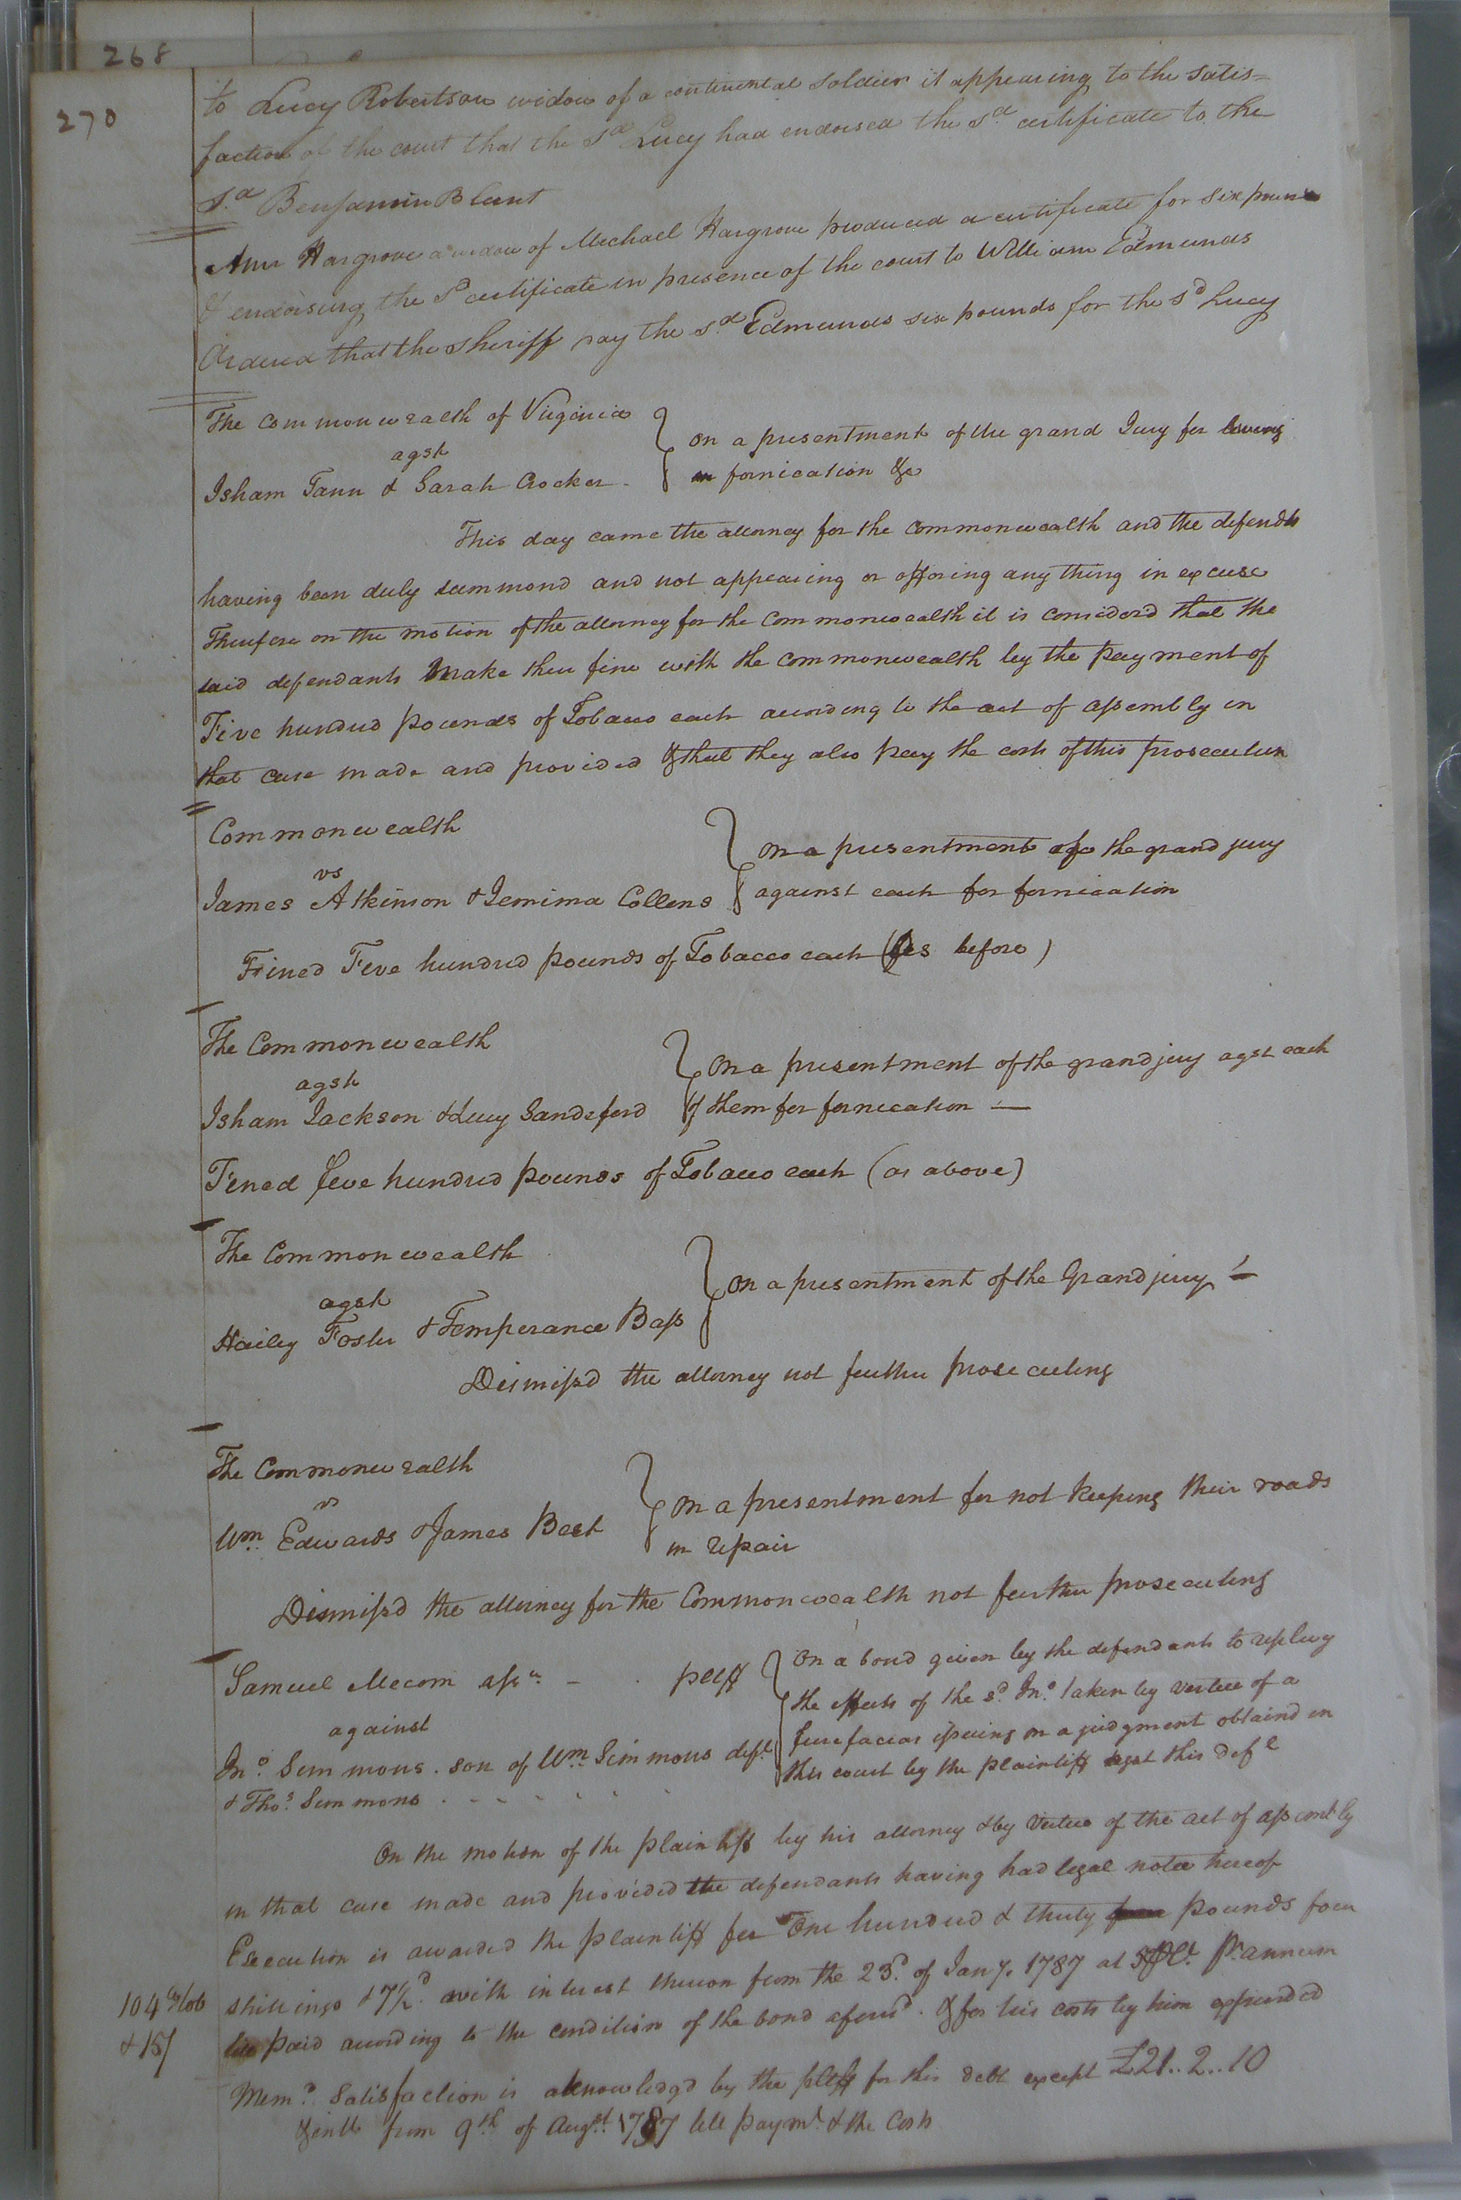 268
270
to Lucy Robertson widow of a continental soldier it appearing to the satis=
faction of the court that the sd Lucy had endorsed the sd certificate to the
sd Benjamin Blunt
Ann Hargrove widow of Michael Hargrove produced a certificate for six pounds
& endorsing the sd certificate in presence of the court to William Edmunds
Ordered that the sheriff pay the sd Edmunds six pounds for the sd Lucy
The Commonwealth of Virginia
agst
Isham Tann & Sarah Crocker
on a presentment of the grand Jury for living
in fornication &c
This day came the attorney for the commonwealth and the defendts
having been duly summond and not appearing or offering any thing in excuse
Therefore on the motion of the attorney for the commonwealth it is considerd that the
said defendants make their fine with the commonwealth by the payment of
Five hundred pounds of Tobacco each according to the act of assembly in
that case made and provided & that they also pay the costs of this prosecution
Commonwealth
vs
James Atkinson & Jemima Collens
on a presentment of the grand jury
against each for fornication
Fined Five hundred pounds of Tobacco each (as before)
The Commonwealth
agst
Isham Jackson & Lucy Sandeford
on a presentment of the grand jury agst each
of them for fornication —
Fined five hundred pounds of Tobacco each (as above)
The Commonwealth
agst
Hailey Foster & Temperance Bass
on a presentment of the Grand jury
Dismissd the attorney not further prosecuting
The Commonwealth
vs
Wm. Edwards & James Best
on a presentment for not keeping their roads
in repair
Dismissd the attorney for the Commonwealth not further prosecuting
Samuel Mecom assee - plff
against
Jno. Simmons . son of Wm. Simmons deft
& Thos. Simmons
on a bond given by the defendants to replevy
the effects of the sd Jno. taken by vertue of a
fierefacias issuing on a judgment obtaind in
this court by the plaintiff agst this deft
On the motion of the plaintiff by his attorney & by Vertue of the act of assembly
in that case made and provided the defendants having had legal notice thereof
Execution is awarded the plaintiff for One hundred & thirty pounds four
shillings & 7½d. with interest thereon from the 23d. of Jany. 1787 at 5 PCt. Pr. annum
paid according to the condition of the bond aforesd. & for his costs by him expended
104 tob
& 15/
Memd. Satisfaction is aknowledgd by the pltff for this debt except £21..2..10
& intt from 9th of Augst. 1787 till paymt. & the Costs